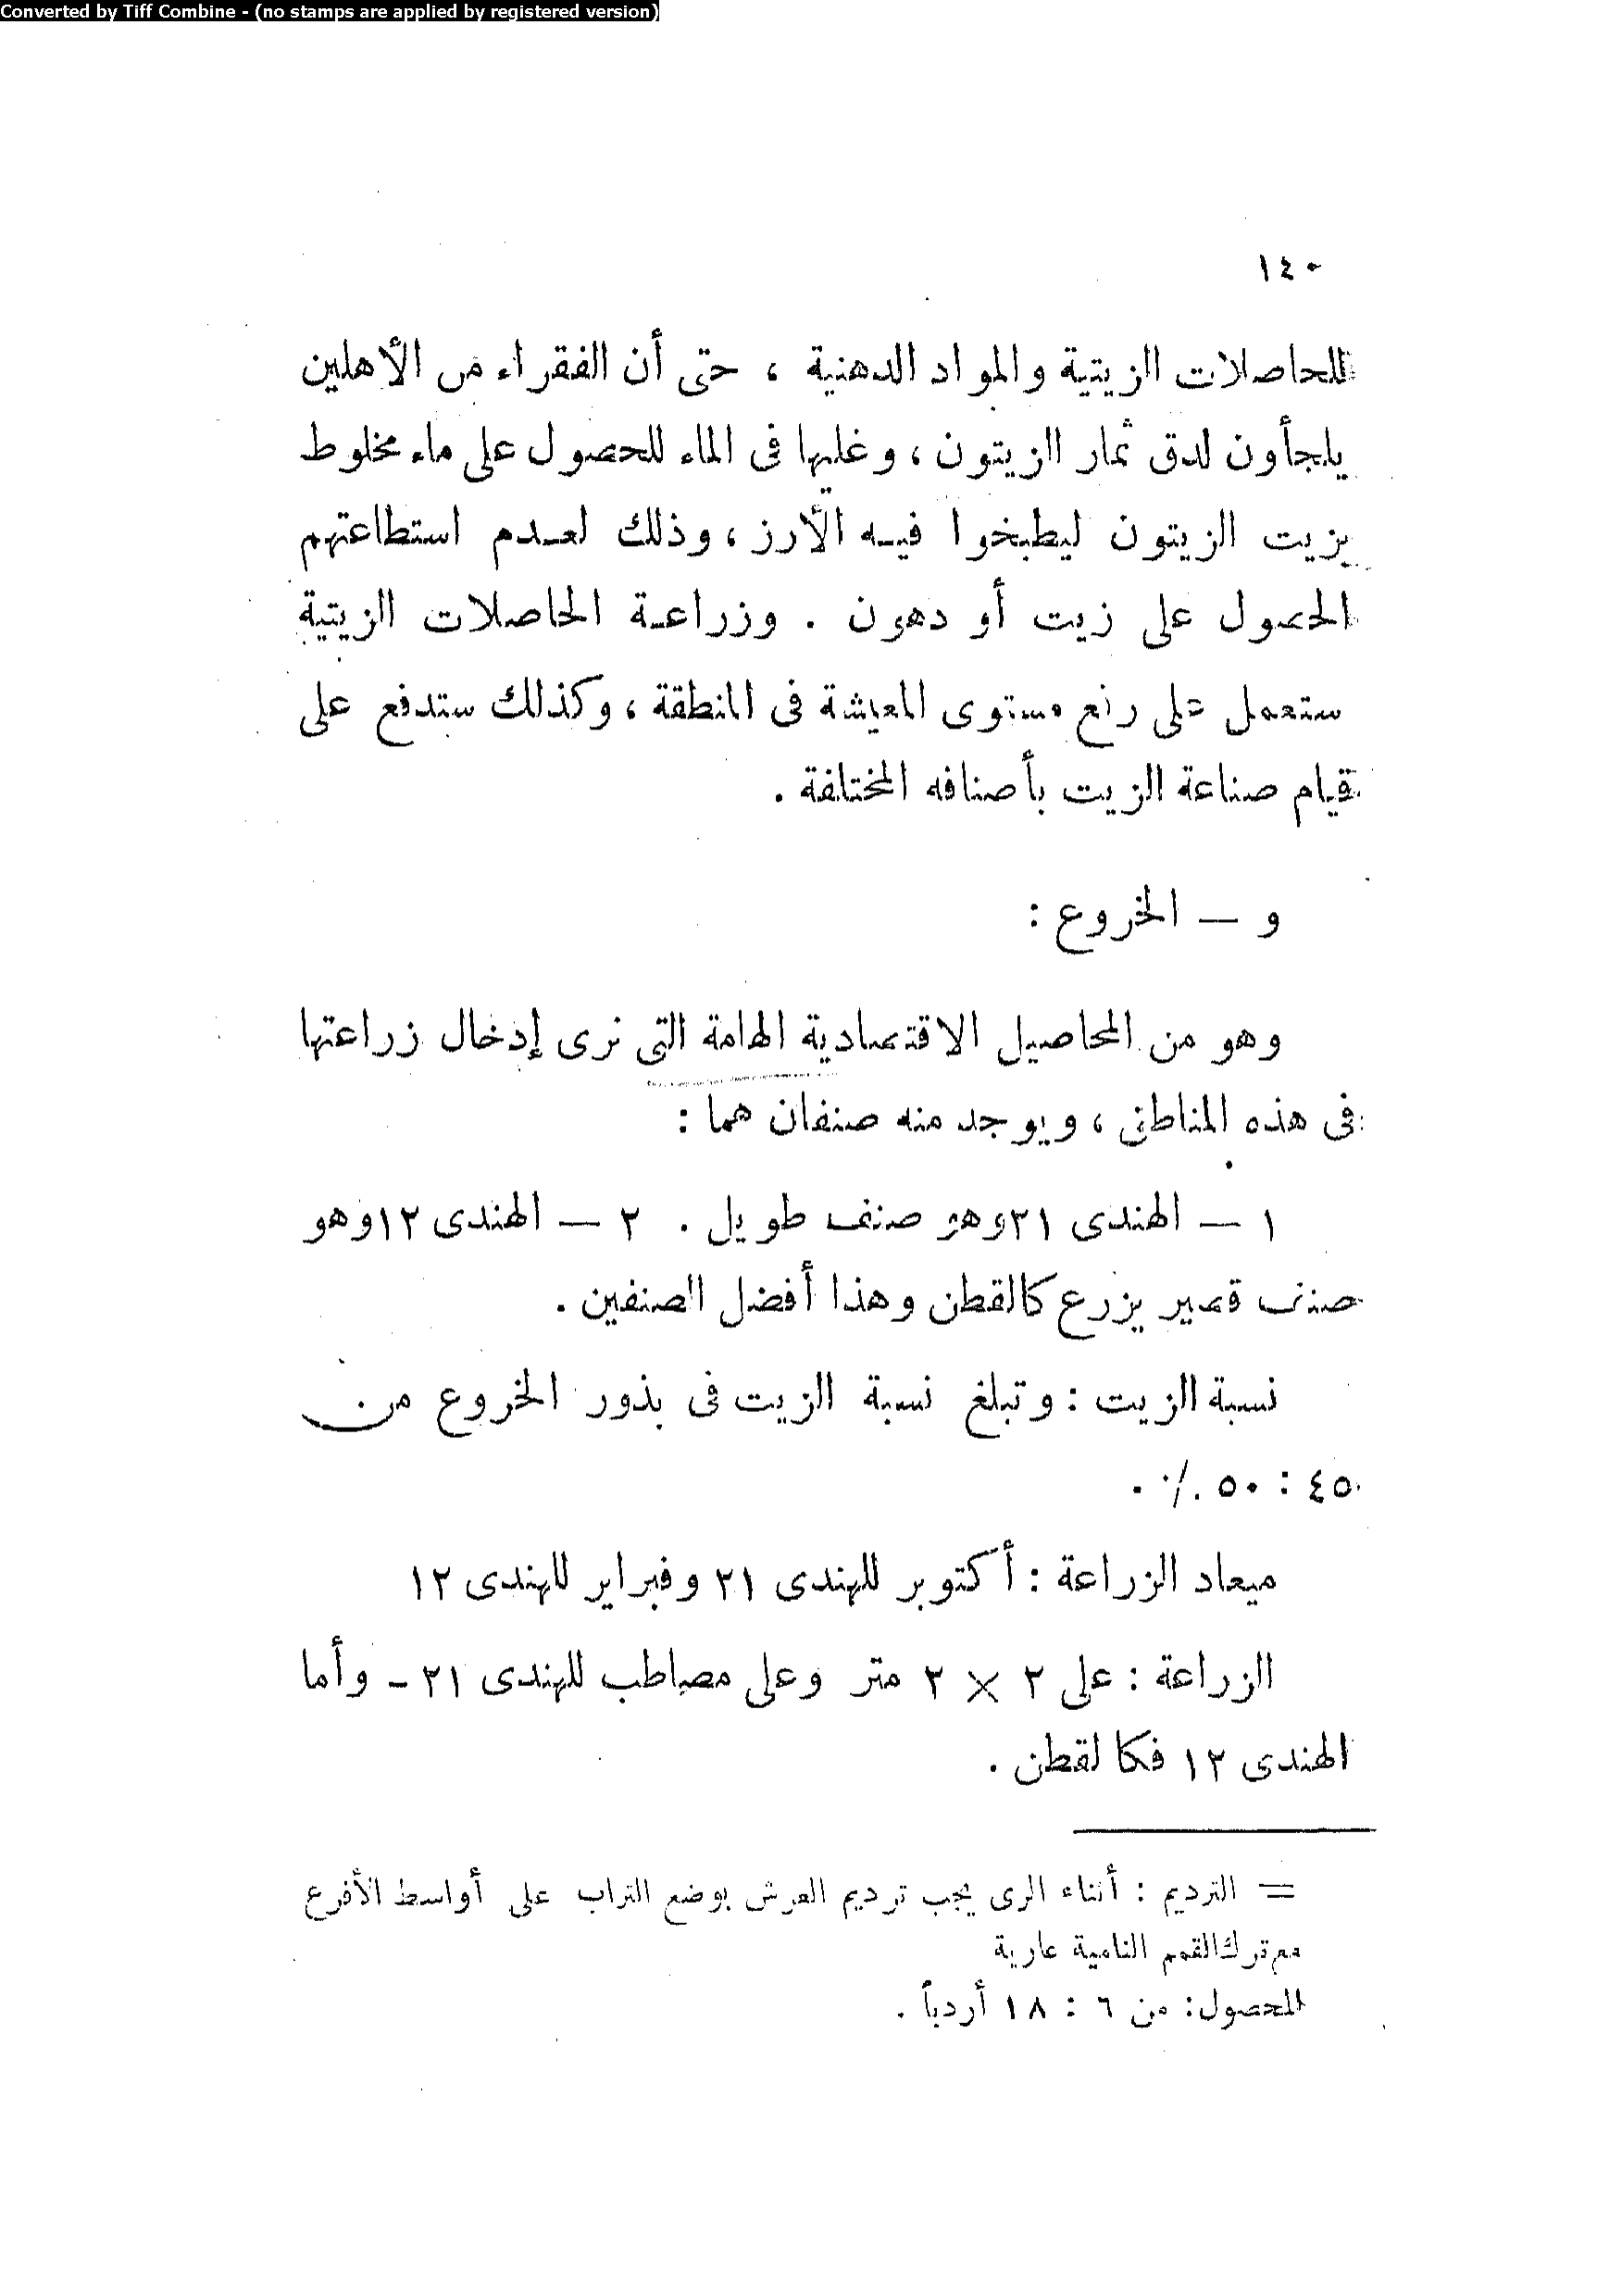 Converted by Tiff Combine - (no stamps are applied by registered version)
١٤٠
للحاصلات الزيتية والمواد الدهنية ، حتى أن الفقراء من الأهلين
يلجأون لدق ثمار الزيتون ، وغليها فى الماء للحصول على ماء مخلوط
بزيت الزيتون ليطبخوا فيه الأرز ، وذلك لعدم استطاعتهم
الحصول على زيت أو دهون . وزراعة الحاصلات الزيتية
ستعمل على رفع مستوى المعيشة فى المنطقة ، وكذلك ستدفع على
قيام صناعة الزيت بأصنافه المختلفة .
و — الخروع :
وهو من المحاصيل الاقتصادية الهامة التى نرى إدخال زراعتها
فى هذه المناطق ، ويوجد منه صنفان هما :
١ — الهندى ٢١ وهو صنف طويل . ٢ — الهندى ١٢ وهو
صنف قصير يزرع كالقطن وهذا أفضل الصنفين .
نسبة الزيت : وتبلغ نسبة الزيت فى بذور الخروع من
٤٥ : ٥٠ ٪ .
ميعاد الزراعة : أكتوبر للهندى ٢١ وفبراير للهندى ١٢
الزراعة : على ٢ × ٢ متر وعلى مصاطب للهندى ٢١ - وأما
الهندى ١٢ فكالقطن .
= الترديم : أثناء الرى يجب ترديم العرش بوضع التراب على أواسط الأفرع
مع ترك القمم النامية عارية
المحصول : من ٦ : ١٨ أردباً .